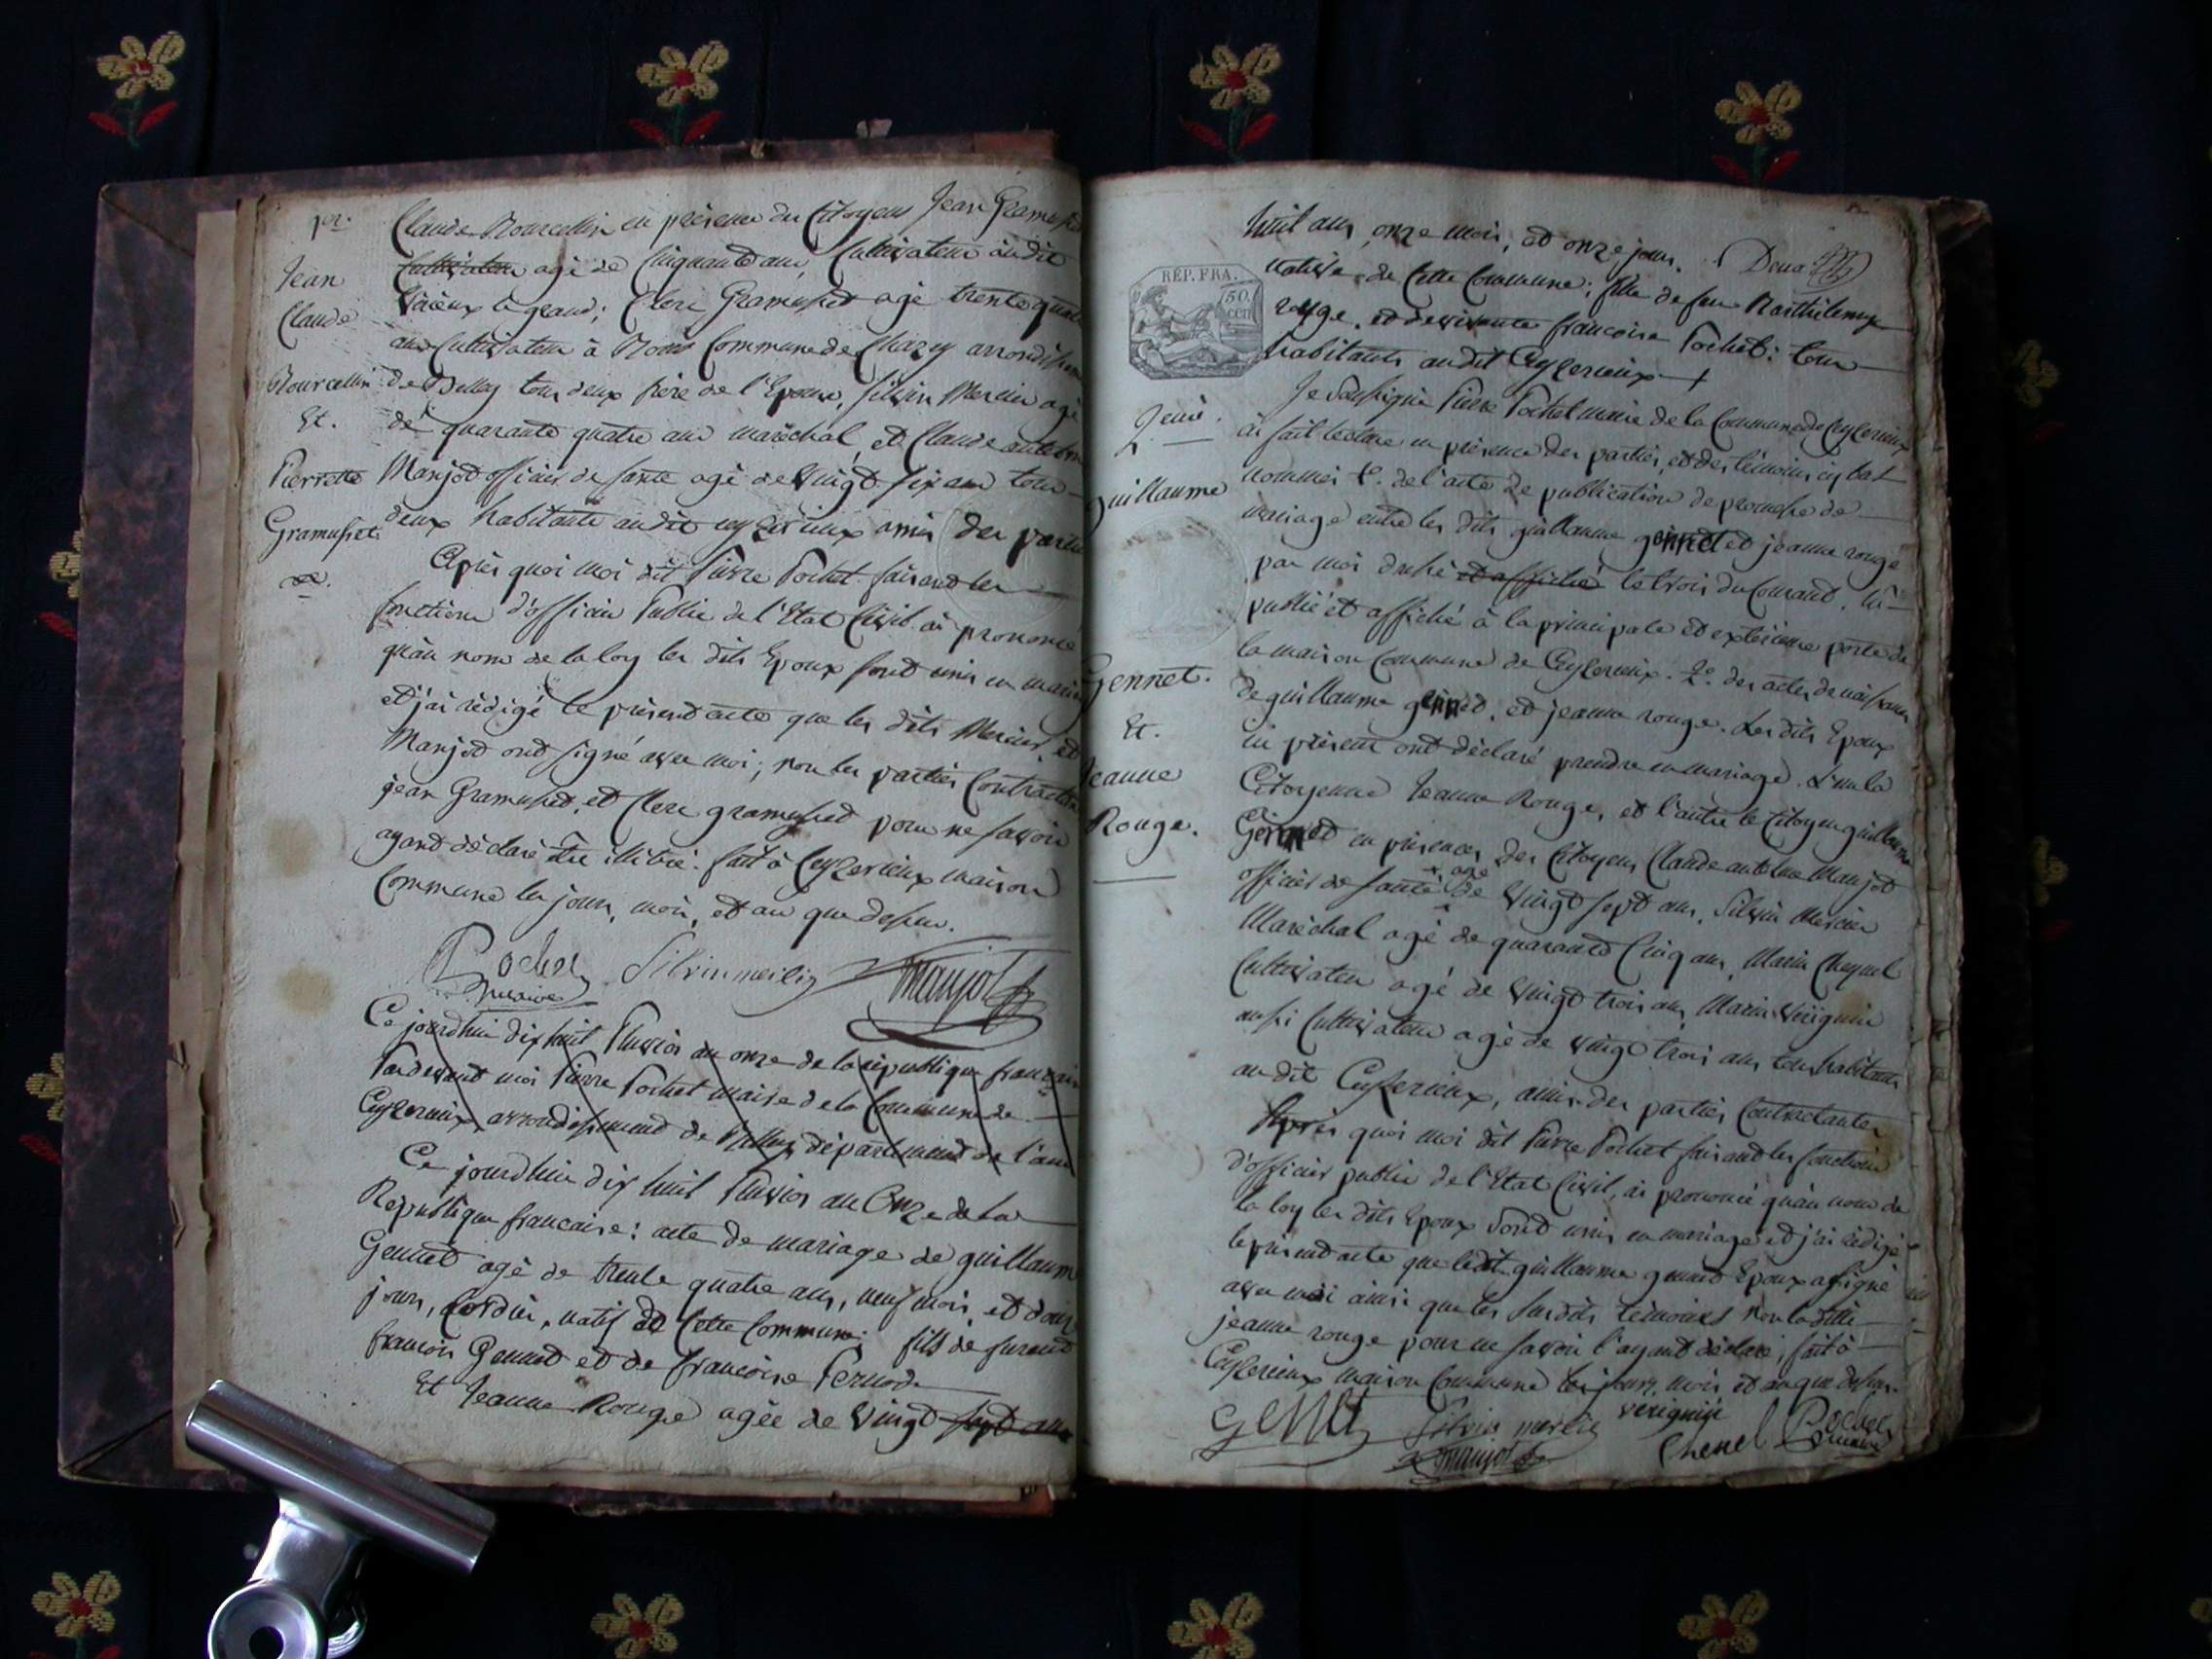 1er.
Jean
Claude
Bourcellin
Et.
Pierrette
Gramuset
Claude Bourcellin en présence des Citoyens Jean Gramuset
cultivateur agé de Cinquante ans, Cultivateur audit
le grand; Clerc Gramuset agé trente quatre
ans Cultivateur à Commune de Chazey arrondissem
de Belley tous deux frère de l'Epouse, Silvin Mercier agé
de quarante quatre ans maréchal, et Claude antelme
Manjot officier de santé agé de Vingt six ans tous
deux habitants audit ceyzerieux amis des parties
Après quoi moi dit Pierre Pochet faisand les
fonctions d'officier Public de l'Etat Civil ai prononcé
qu'au nom de la loy les dits Epoux sont unis en mariage
et j'ai rédigé le présent acte que les dits Mercier, et
Manjot ont signé avec moi; non les parties Contractantes
jean Gramuset, et Clerc gramuset pour ne savoir
ayant déclaré être illitéré. fait à Ceyzerieux maison
Commune les jour, mois, et an que dessus.
Pochet maire Silvin mercier Manjot
Ce jourdhui dix huit Pluvios an onze de la république française
Pardevant moi Pierre Pochet maire de la Commune de
Ceyzerieux arrondissement de Belley département de l'ain
Ce jourdhui dix huit Pluvios an Onze de la
République francaise: acte de mariage de guillaume
Gennet agé de trente quatre ans, neuf mois, et douze
jours, Cordier, natif de Cette Commune; fils de
francois Gennet et de francoise Pernod
Et Jeanne Rouge agée de Vingt sept ans
huit ans, onze mois, et onze jours. Deux
RÉP. FRA.
50. cen
native de Cette Commune; fille de feu Barthélemy
rouge, et de vivante francoise Pochet: tous
habitants audit Ceyzerieux
2eme.
guillaume
Gennet.
Et.
Jeanne
Rouge.
Je Soussigné Pierre Pochet maire de la Commune de Ceyzerieux
ai fait lecture en présence des parties, et des témoins cy bas
nommés 1o. de l'acte de publication de promesse de
mariage entre les dits guillaume gennet et jeanne rouge
par moi et affiché le trois du Courant. lu
publié et affiché à la principale et exterieure porte de
la maison Commune de Ceyzerieux. 2o. des actes de naissances
de guillaume gennet, et jeanne rouge. Les dits Epoux
ici présent ont déclaré prendre en mariage. L'un la
Citoyenne Jeanne Rouge, et l'autre le Citoyen guillaume
Gennet en présences des Citoyens Claude antelme Manjot
officier de santé agé de Vingt sept ans, Silvin Mercier
Maréchal agé de quarante Cinq ans, Marin Cheynel
Cultivateur agé de Vingt trois ans, Marin Vériguin
aussi Cultivateur agé de vingt trois ans tous habitants
audit Ceyzerieux, amis des parties Contractantes
Après quoi moi dit Pierre Pochet faisand les fonctions
d'officier public de l'Etat Civil, ai prononcé qu'au nom de
la loy les dits Epoux sont unis en mariage et j'ai rédigé
le présent acte que ledit guillaume gennet Epoux a signé
avec moi ainsi que les susdits témoins non la ditte
jeanne rouge pour ne savoir l'ayant déclaré; fait à
Ceyzerieux maison Commune les jours, mois et an que dessus.
Genet Silvin mercier Manjot Chenel Pochet maire